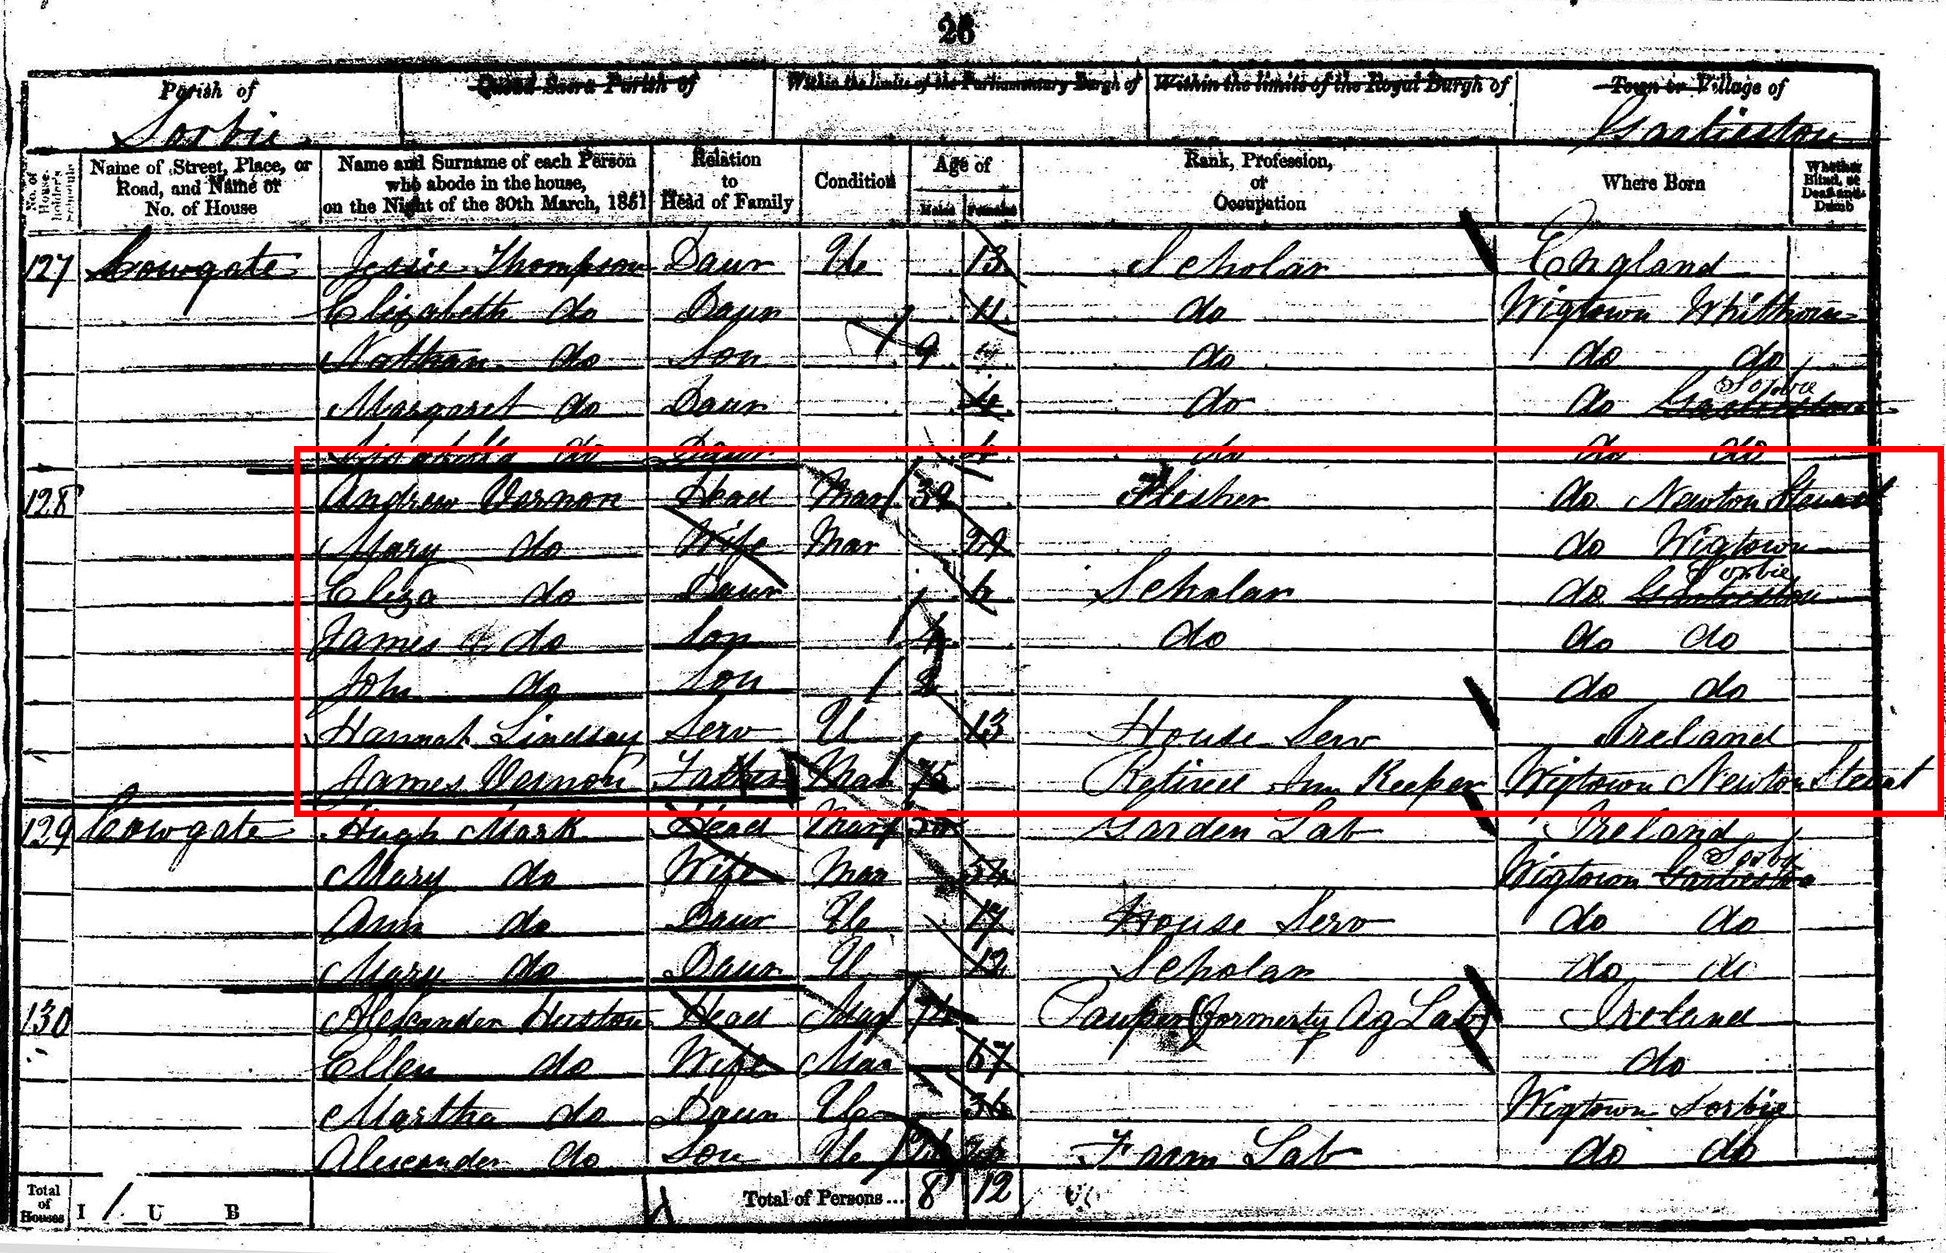 26
Parish of
Sorbie
Quoad Sacra Parish of
Within the limits of the Parliamentary Burgh of
Within the limits of the Royal Burgh of
Town or Village of
Garlieston
No. of House-holder's Schedule
Name of Street, Place, or Road, and Name or No. of House
Name and Surname of each Person who abode in the house, on the Night of the 30th March, 1851
Relation to Head of Family
Condition
Age of
Males
Females
Rank, Profession, or Occupation
Where Born
Whether Blind, or Deaf and Dumb
127 Cowgate Jessie Thompson Daur U 13 Scholar England
Elizabeth do Daur 11 do Wigtown Whithorn
Nathan do Son 9 do do do
Margaret do Daur do do Garlieston Sorbie
do Daur do do do
128 Andrew Vernon Head Mar 39 Flesher do Newton Stewart
Mary do Wife Mar 29 do Wigtown
Eliza do Daur 6 Scholar do Garlieston Sorbie
James do Son 4 do do do
John do Son 2 do do
Hannah Lindsay Serv U 13 House Serv Ireland
James Vernon Father Mar 75 Retired Inn Keeper Wigtown Newton Stewart
129 Cowgate Hugh Mark Head Mar Garden Lab Ireland
Mary do Wife Mar 54 Wigtown Garlieston Sorbie
Ann do Daur U 17 House Serv do do
Mary do Daur U 12 Scholar do do
130 Alexander Huston Head Mar Pauper (formerly Ag Lab) Ireland
Ellen do Wife Mar 67 do
Martha do Daur U 36 Wigtown Sorbie
Alexander do Son U Farm Lab do do
Total of Houses I 1 U B
Total of Persons... 8 12